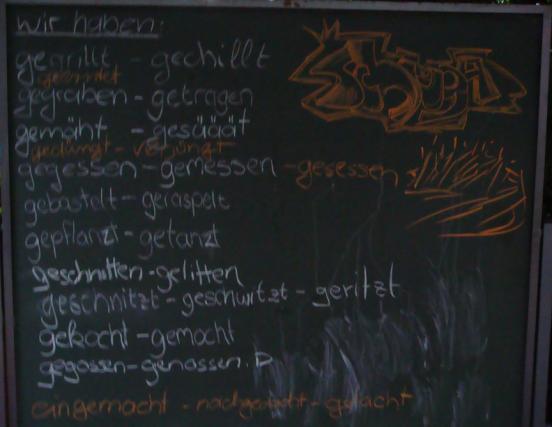 wir haben:
gegrillt - gechillt
geerntet
gegraben - getragen
gemäht - gesääät
gedüngt - verjüngt
gegessen - gemessen - gesessen
gebastelt - geraspelt
gepflanzt - getanzt
geschnitten - gelitten
geschnitzt - geschwitzt - geritzt
gekocht - gemocht
gegossen - genossen :D
eingemacht - nachgedacht - gelacht